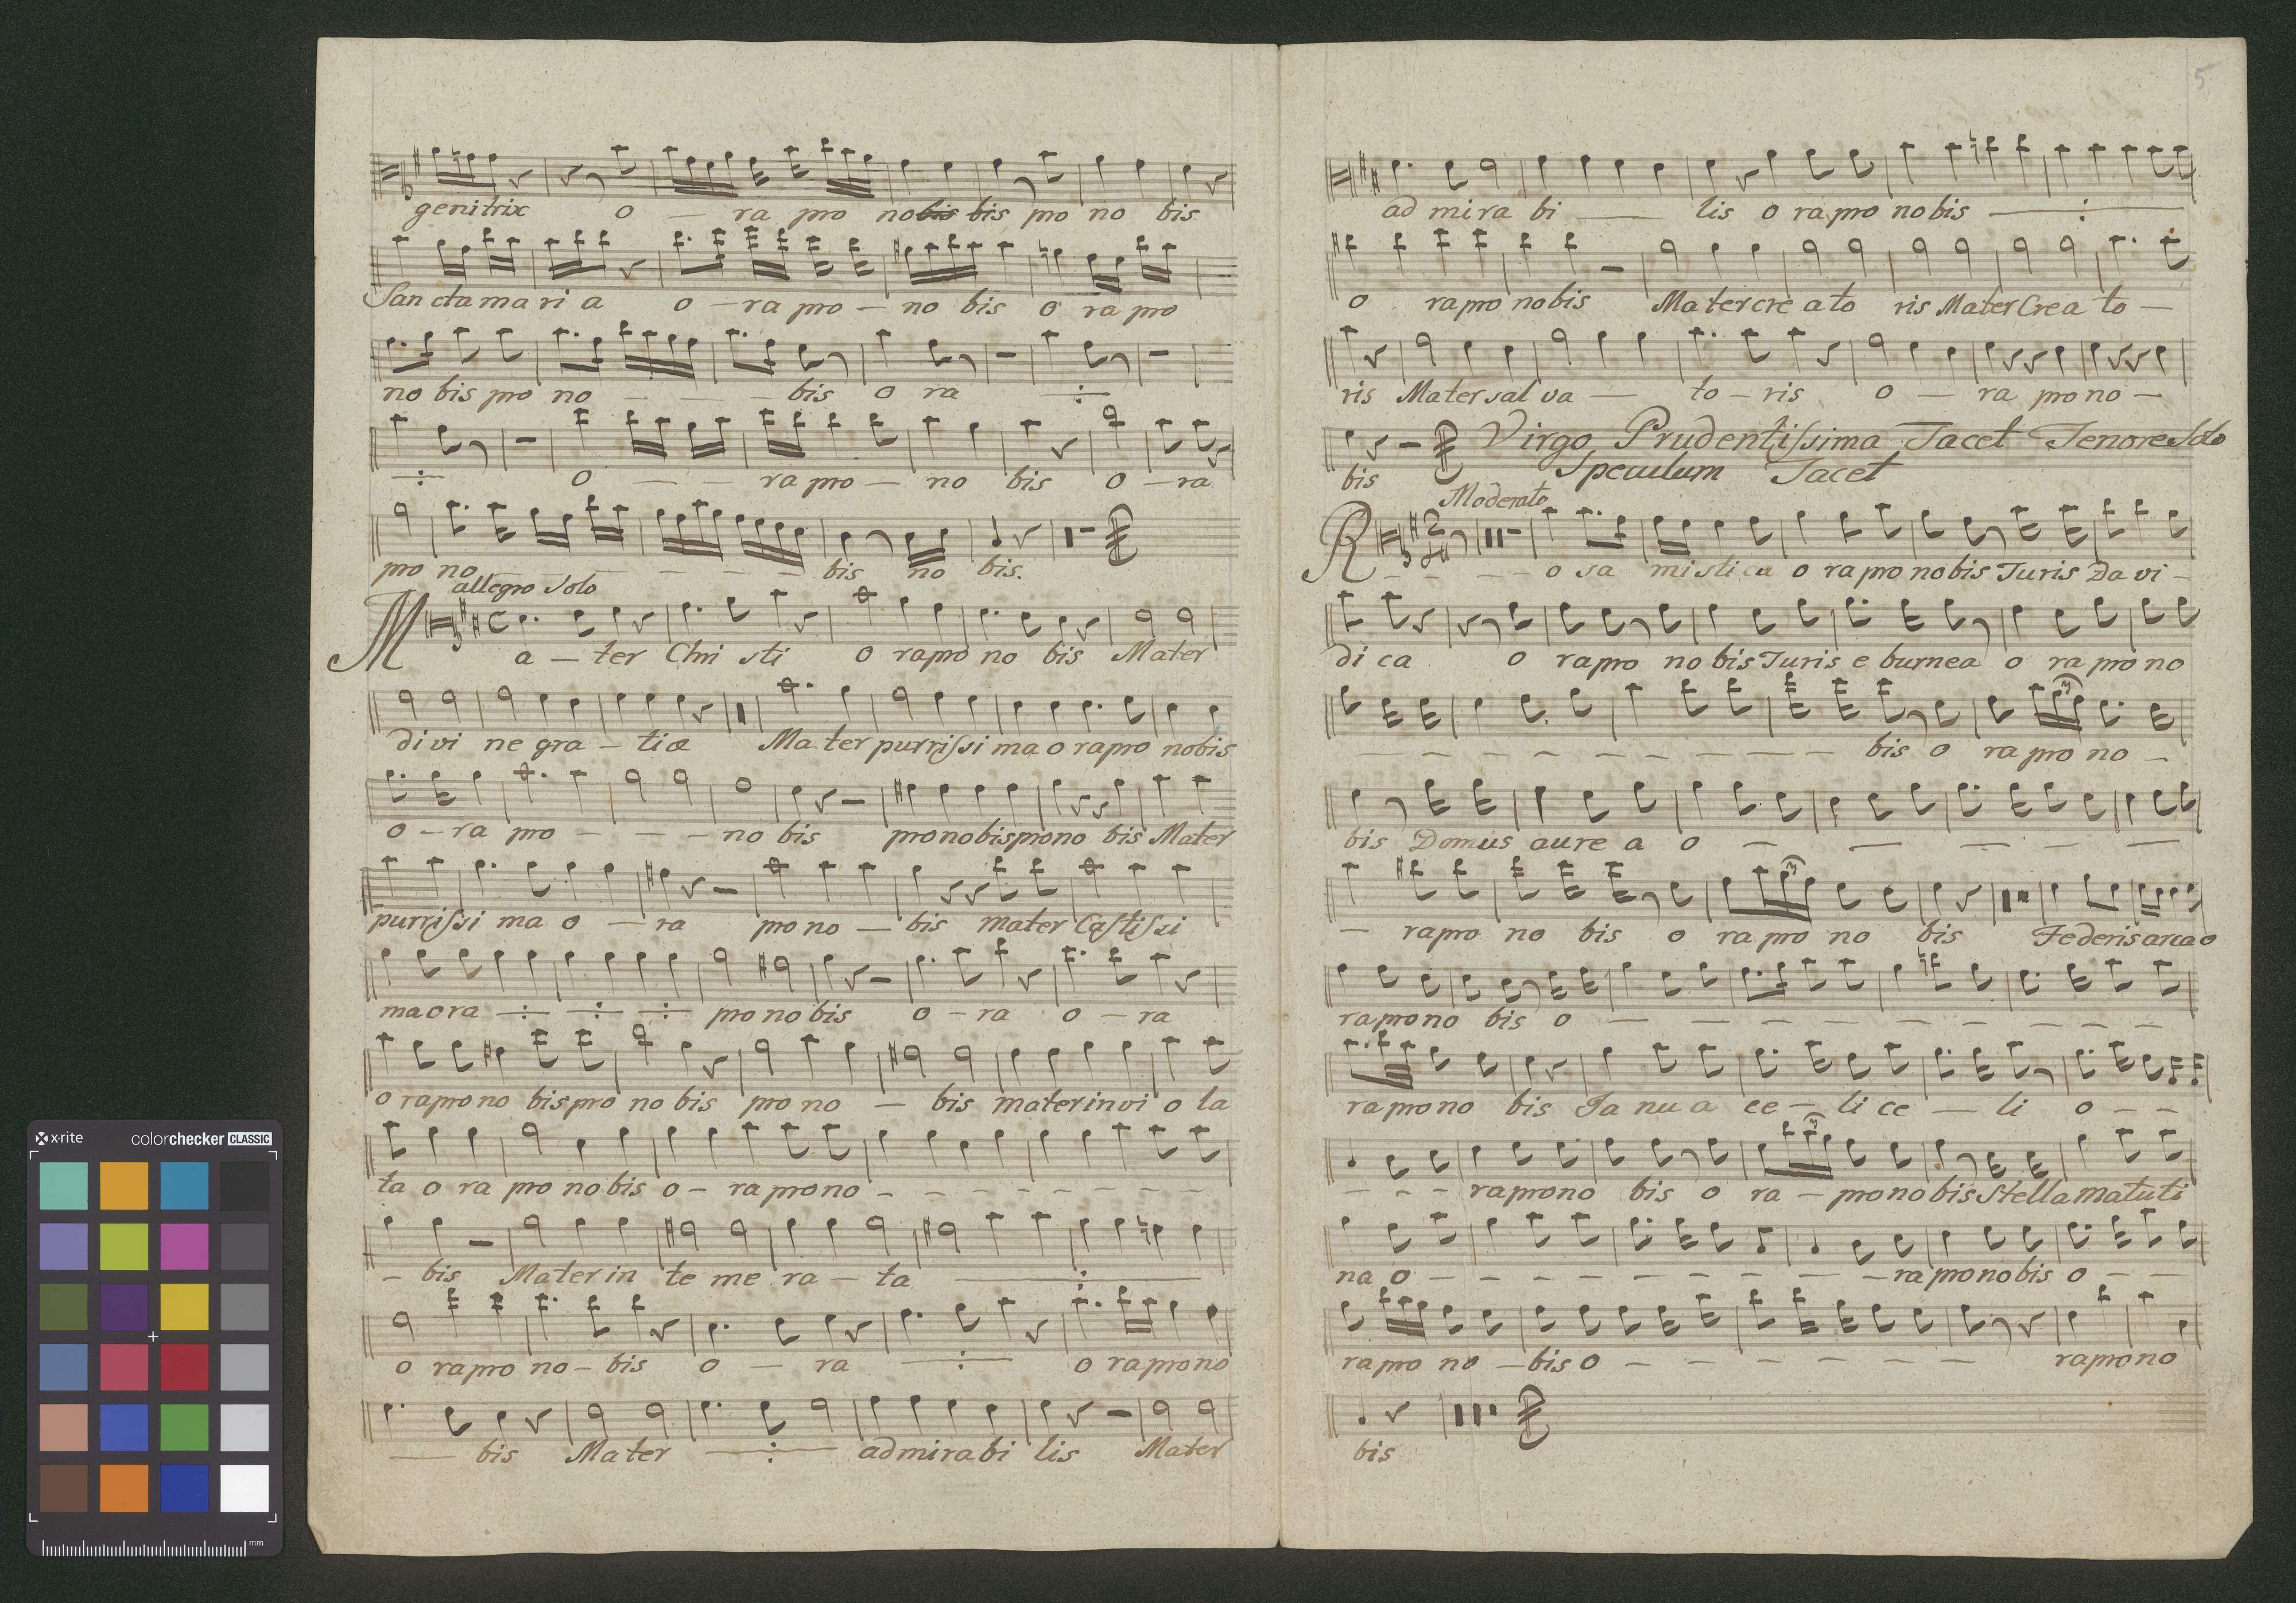 genitrix o — ra pro nobis bis pro no bis
Sancta maria o — ra pro — no bis o ra pro
no bis pro no - - - bis o ra ÷
÷ o — — - ra pro — no bis o — ra
pro no - - - - - - bis no bis.
allegro Solo
Ma — ter Chri sti o rapro no bis Mater
divi ne gra — tiæ Mater purriſsi ma o rapro nobis
o — ra pro - - - no bis pronobis prono bis Mater
purriſsi ma o — ra pro no — bis mater Caſtiſsi
ma ora ÷ ÷ ÷ pro no bis o — ra o — ra
o rapro no bis pro no bis pro no — bis mater invi o la
ta o ra pro no bis o — ra prono - - - - - - - -
- bis Mater in te me ra — ta ÷
o rapro no — bis o — ra ÷ o rapro no
— bis Mater ÷ admirabi lis Mater
5
ad mi ra bi — lis o rapro nobis ÷
o rapro nobis Mater cre ato ris Mater Crea to —
ris Mater sal va — to — ris o — ra pro no —
bis Virgo Prudentiſsima Tacet Tenore Solo
Speculum Tacet
Moderato
R - - - - o sa mistica o rapro nobis Turis Da vi -
di ca o rapro no bis Turis e burnea o ra pro no
- - - - - - - - bis o ra pro no -
bis Domus aure a o — — — - —
— rapro no bis o ra pro no bis Federis arca o
rapro no bis o — — - - - - - - -
rapro no bis Ja nu a ce — li ce — li o - -
- - - ra pro no bis o ra — pro no bis Stella matuti
na o - - - - - - - - - rapronobis o - —
rapro no — bis o - - - - - - - rapro no
bis